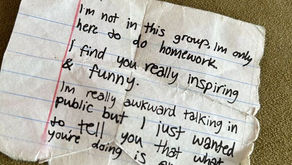 I'm not in this group, im only
here to do homework
I find you really inspiring
& funny.
Im really awkward talking in
public but I just wanted
to tell you that what
you're doing is